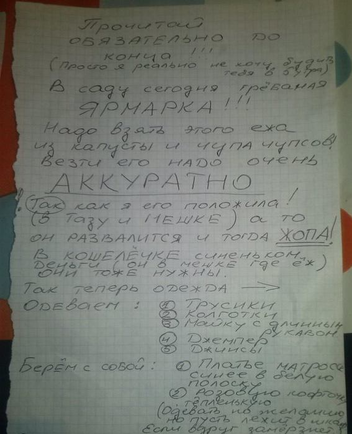 Прочитай
ОБЯЗАТЕЛЬНО ДО
КОНЦА!!!
(Просто я реально не хочу будить
тебя в 5 утра)
В саду сегодня грёбаная
ЯРМАРКА!!!
Надо взять этого ежа
из капусты и чупа чупсов!
Везти его НАДО очень
АККУРАТНО
! (Так как я его положила!
(В тазу и МЕШКЕ) а то
он РАЗВАЛИТСЯ и тогда ЖОПА!
В КОШЕЛЁЧКЕ СИНЕНЬКОМ
Деньги (он в мешке где ёж)
они тоже нужны.
Так теперь одежда →
Одеваем: ① Трусики
② Колготки
③ Майку с длинным
рукавом
④ Джемпер
⑤ Джинсы
Берём с собой: ① Платье матроса
синее в белую
полоску
② Розовую кофточку
тёпленькую
(Одевать по желанию
но пусть лежит в шкафу
Если вдруг замёрзнет)